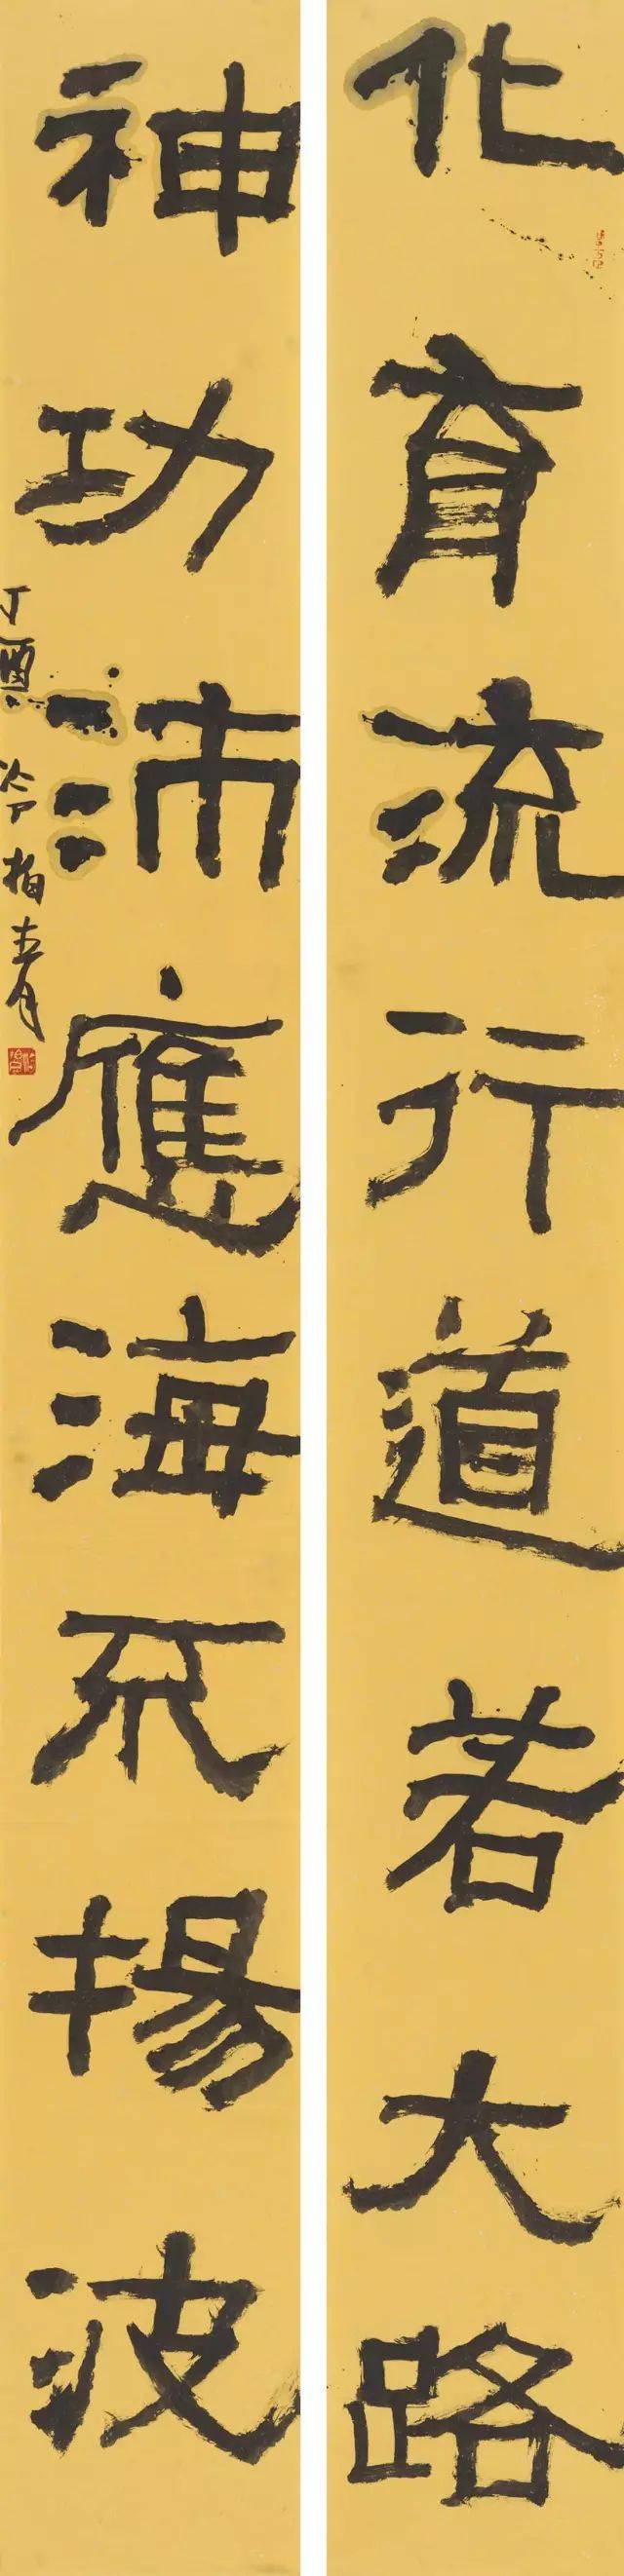 化育流行道若大路
神功沛應海不揚波
丁酉 冷柏青